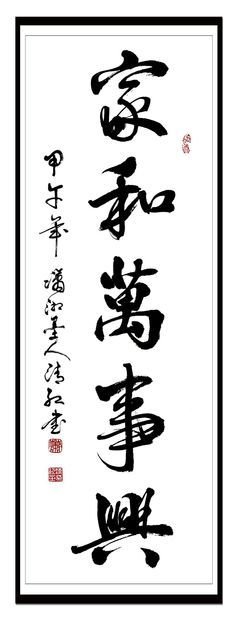 家和萬事興
甲午年瀟湘墨人清紅書